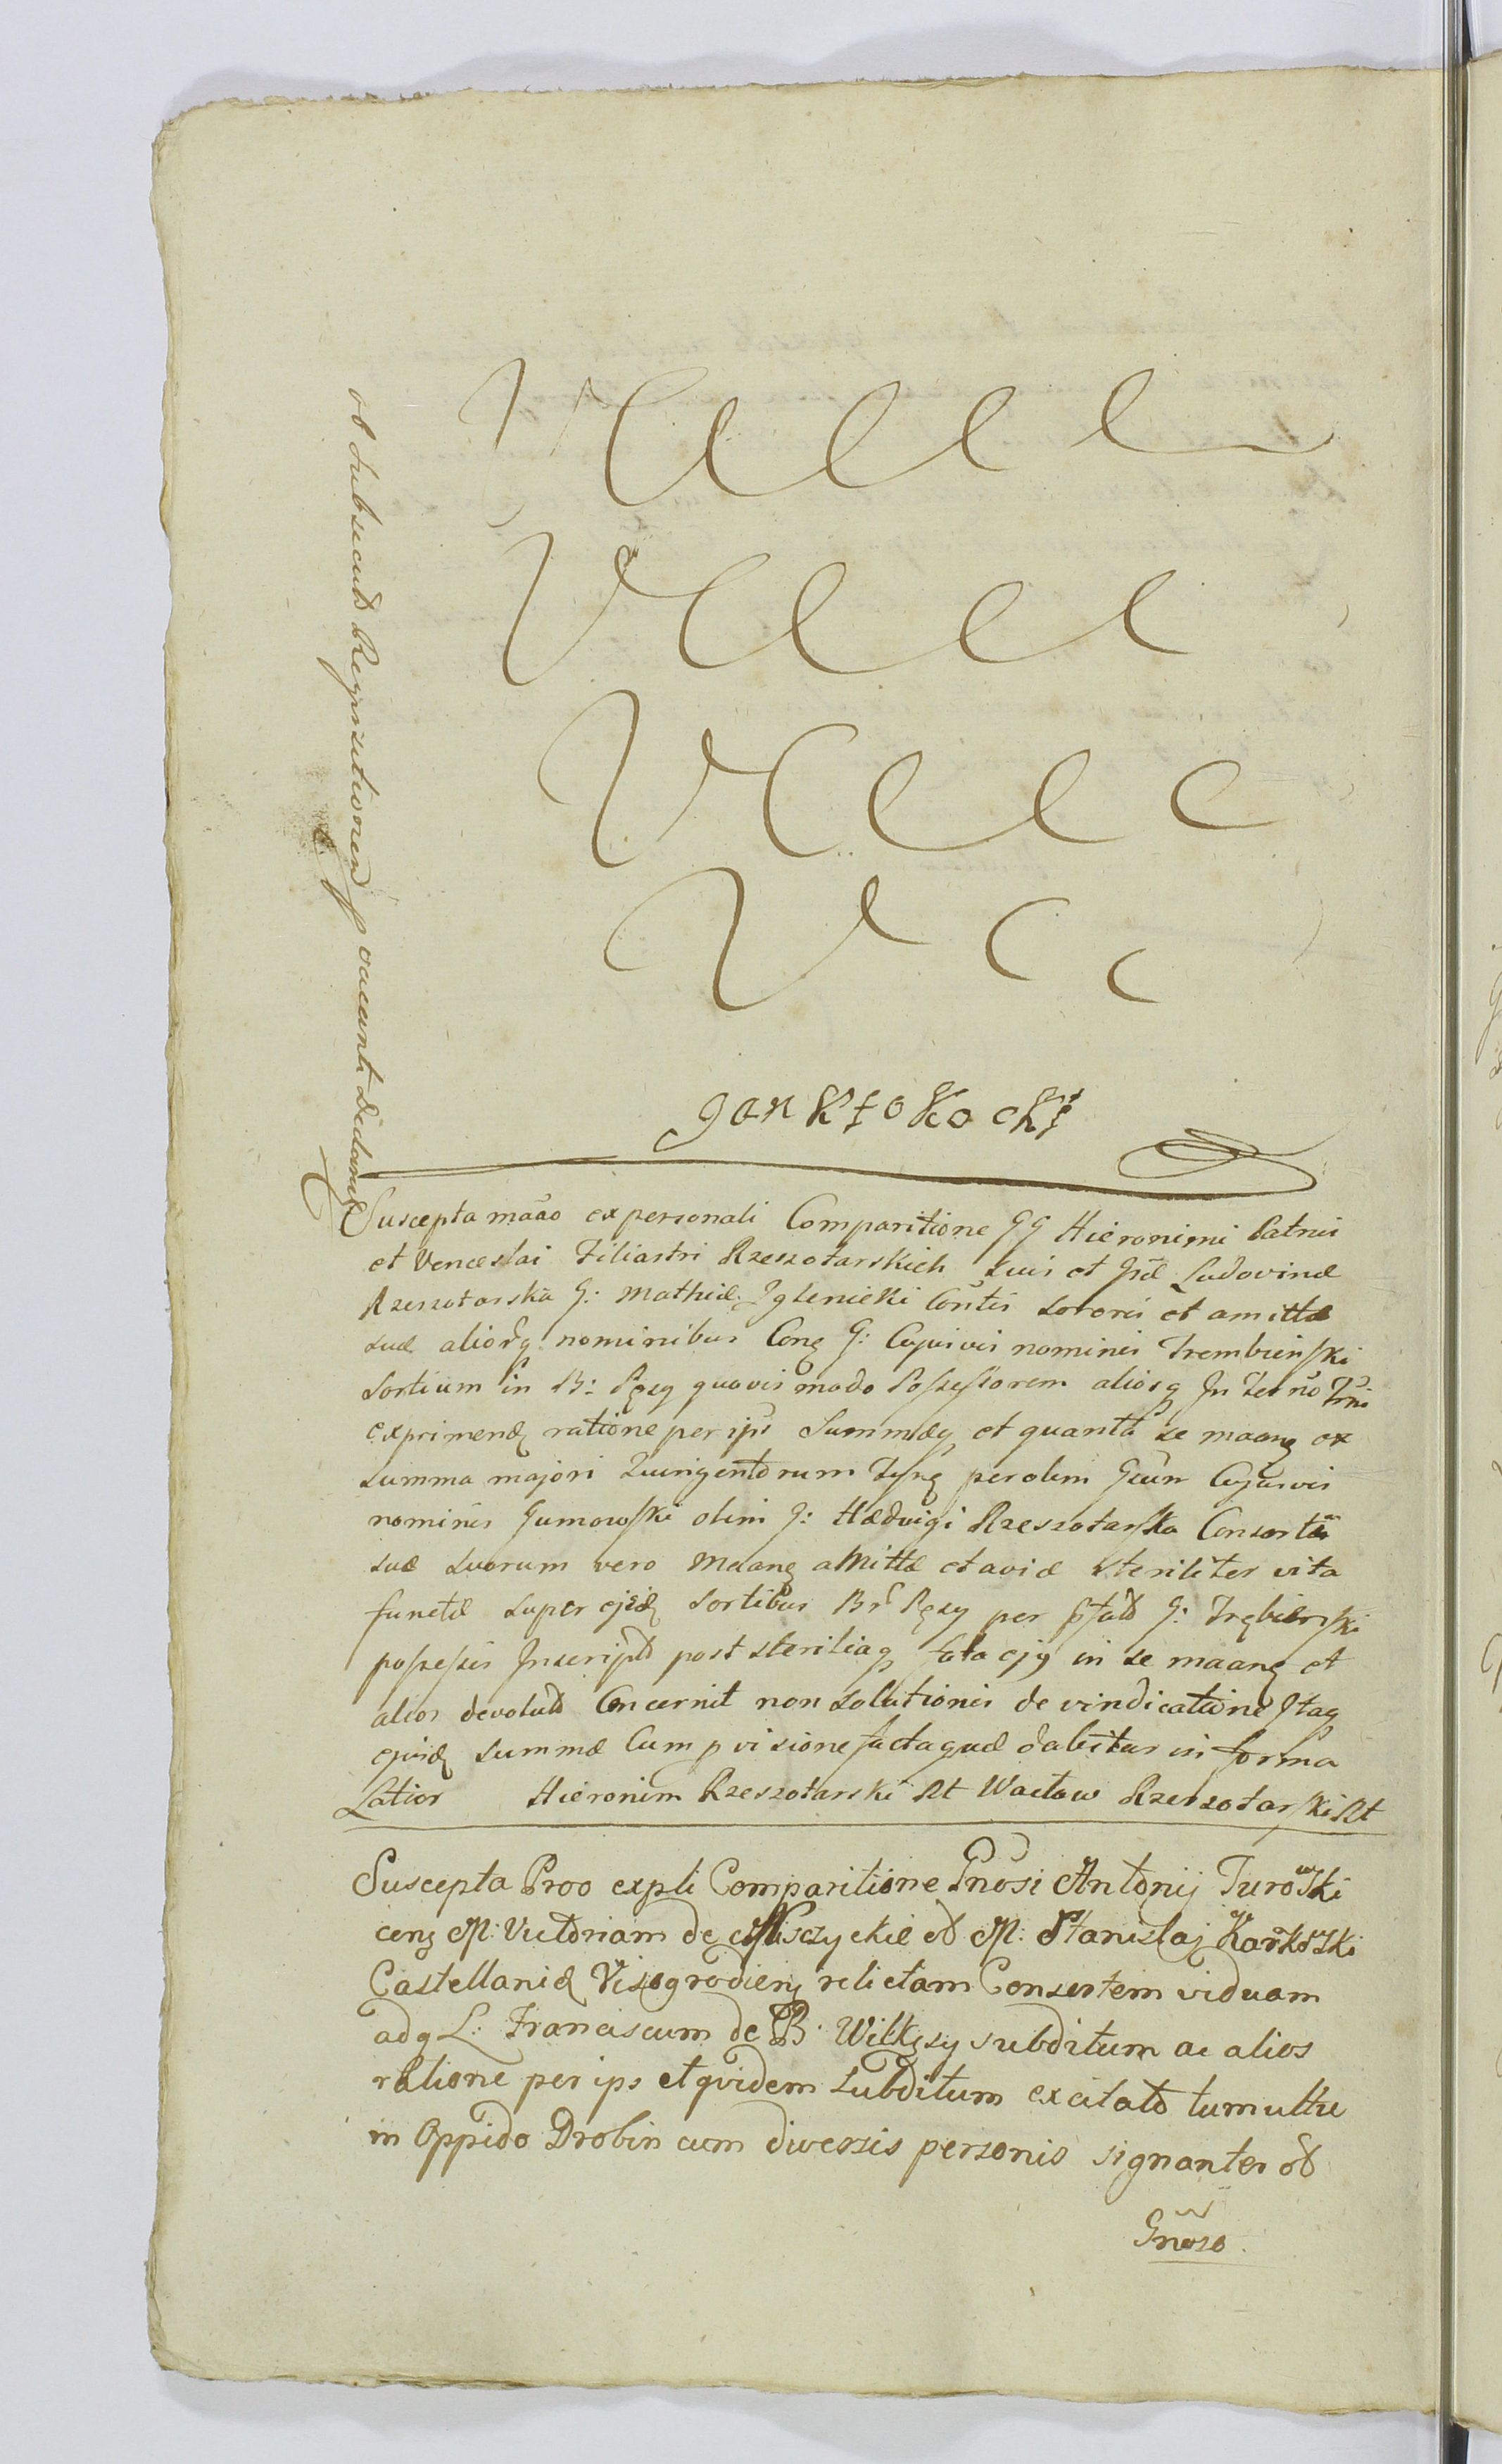 ob subsecut Regnitionem p vacant declarat
Jan Kłokocki
Suscepta maão ex personali Comparitione GG Hieronimi Patrui
et Venceslai Filiastri Rzeszotarskich suis et Ludovinæ
Rzeszotarska G: Mathiæ Iglenicki Contis sororis et amittæ
suæ aliorq nominibus Cong G: Cujusvis nominis Trembinski
Sortium in B: Pęsy quovis modo Possessorem aliosq In Ter no
exprimend ratione per ips Summæq et quanta se maang ex
summa majori Quingentorum per olim Gum Cujusvis
nominis Gumowski olim G: Hædvigi Rzeszotarska Consorti
suæ suorum vero maang amittæ et aviæ steriliter vita
functæ super ejsd sortibus Br Pęsy per G: Trębinski
possessis Inscript post steriliaq fata ejq in se maang et
alios devolut Concernit non solutionis de vindicatione Itaq
ejusd summæ Cum p visione factaquæ dabitur in forma
Latior Hieronim Rzeszotarski Rt Wacław Rzeszotarski Rt
Suscepta Proo expli Comparitione Gnosi Antonij Turowski
cong M: Victoriam de ol M: Stanislaj Karkowski
Castellanid Visogrodien relictam Consortem viduam
adq L: Franciscum de B: Wilkęsy subditum ac alios
ratione per ips et quidem subditum excitato tumultu
in Oppido Drobin cum diversis personis signanter ol
Gnoso.